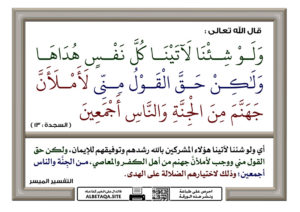 قال الله تعالى :
وَلَوْ شِئْنَا لَآتَيْنَا كُلَّ نَفْسٍ هُدَاهَا
وَلَٰكِنْ حَقَّ الْقَوْلُ مِنِّي لَأَمْلَأَنَّ
جَهَنَّمَ مِنَ الْجِنَّةِ وَالنَّاسِ أَجْمَعِينَ
( السجدة : ١٣ )
أي ولو شئنا لآتينا هؤلاء المشركين بالله رشدهم وتوفيقهم للإيمان، ولكن حق
القول مني ووجب لأملأنَّ جهنم من أهل الكفر والمعاصي، من الجِنَّة والناس
أجمعين؛ وذلك لاختيارهم الضلالة على الهدى.
التفسير الميسر
احرص على طباعة
ونشر هذه الورقة
ALBETAQA.SITE